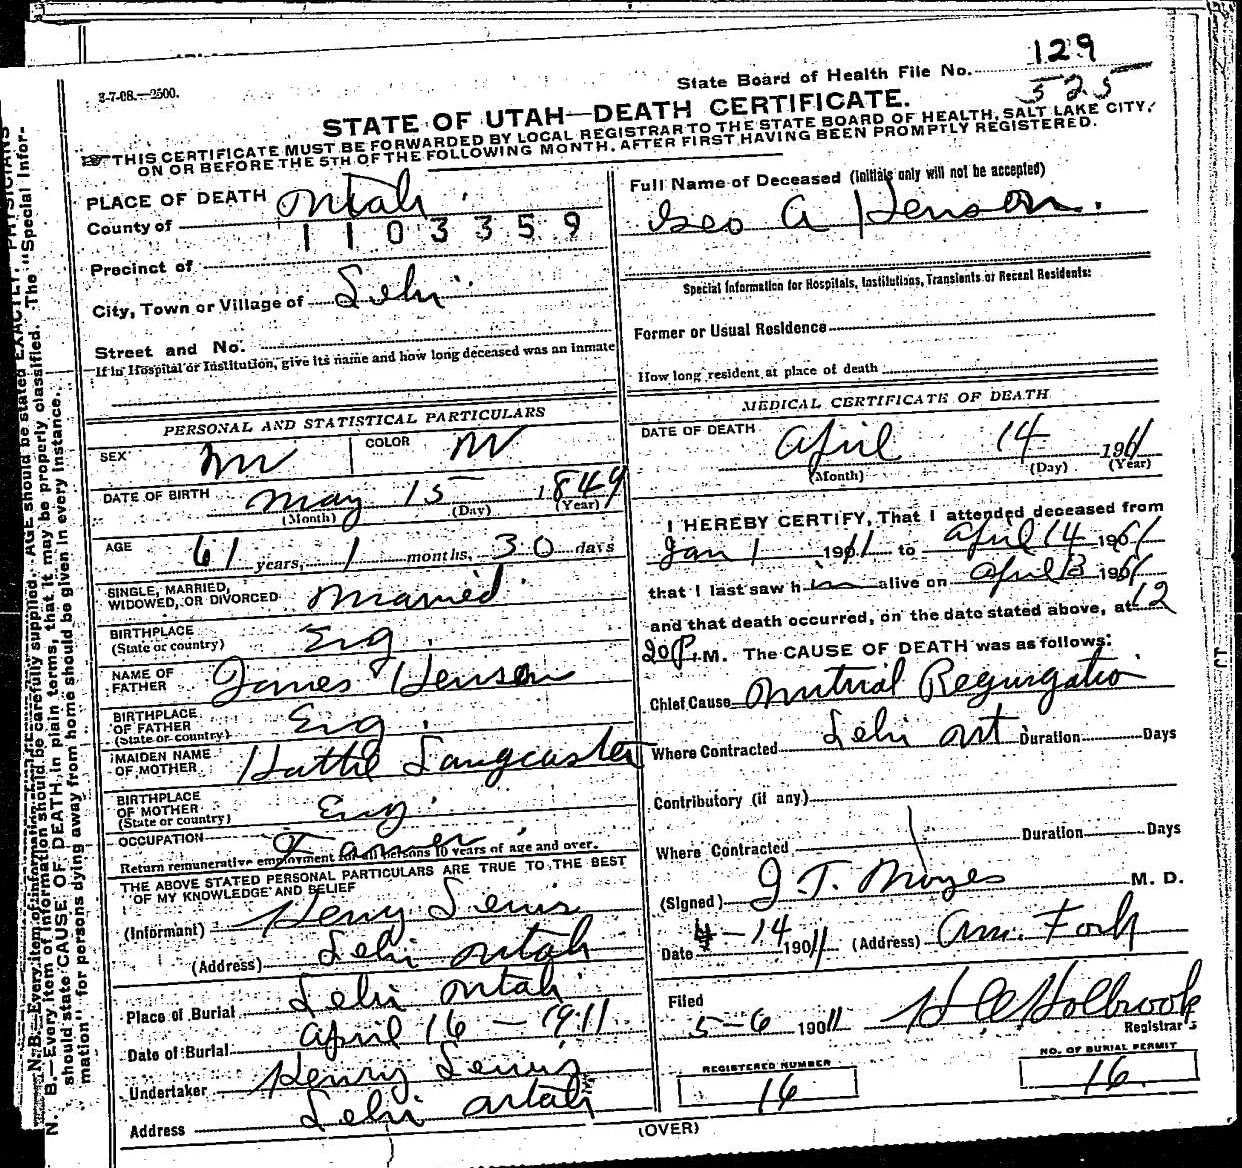 3-7-08.—2500.
State Board of Health File No. 129
525
STATE OF UTAH—DEATH CERTIFICATE.
THIS CERTIFICATE MUST BE FORWARDED BY LOCAL REGISTRAR TO THE STATE BOARD OF HEALTH, SALT LAKE CITY,
ON OR BEFORE THE 5TH OF THE FOLLOWING MONTH, AFTER FIRST HAVING BEEN PROMPTLY REGISTERED.
PLACE OF DEATH
County of Utah
1103359
Precinct of
City, Town or Village of Lehi
Street and No.
If in Hospital or Institution, give its name and how long deceased was an inmate
PERSONAL AND STATISTICAL PARTICULARS
SEX M COLOR W
DATE OF BIRTH May 15 1849
(Month) (Day) (Year)
AGE 61 years, 1 months, 30 days
SINGLE, MARRIED,
WIDOWED, OR DIVORCED Married
BIRTHPLACE
(State or country) Eng
NAME OF
FATHER James Henson
BIRTHPLACE
OF FATHER
(State or country) Eng.
MAIDEN NAME
OF MOTHER Hattie Langcaster
BIRTHPLACE
OF MOTHER
(State or country) Eng.
OCCUPATION Farmer
Return remunerative employment for all persons 10 years of age and over.
THE ABOVE STATED PERSONAL PARTICULARS ARE TRUE TO THE BEST
OF MY KNOWLEDGE AND BELIEF
(Informant) Henry Lewis
(Address) Lehi Utah
Place of Burial Lehi Utah
Date of Burial April 16 - 1911
Undertaker Henry Lewis
Address Lehi Utah
Full Name of Deceased (Initials only will not be accepted)
Geo A Henson.
Special Information for Hospitals, Institutions, Transients or Recent Residents:
Former or Usual Residence
How long resident at place of death
MEDICAL CERTIFICATE OF DEATH
DATE OF DEATH April 14 1911
(Month) (Day) (Year)
I HEREBY CERTIFY, That I attended deceased from
Jan 1 1911 to April 14 1911
that I last saw him alive on April 13 1911
and that death occurred, on the date stated above, at 12
20 P. M. The CAUSE OF DEATH was as follows:
Chief Cause Mitrial Regurgatio
Where Contracted Lehi Ut. Duration Days
Contributory (if any)
Duration Days
Where Contracted
(Signed) J. T. Noyes M. D.
Date 4-14 1911 (Address) Am. Fork
Filed
5-6 1911 H C Holbrook
Registrar
REGISTERED NUMBER
16
NO. OF BURIAL PERMIT
16
(OVER)
N. B.—Every item of information should be carefully supplied. AGE should be stated EXACTLY. PHYSICIANS
should state CAUSE OF DEATH in plain terms, that it may be properly classified. The "Special Infor-
mation" for persons dying away from home should be given in every instance.